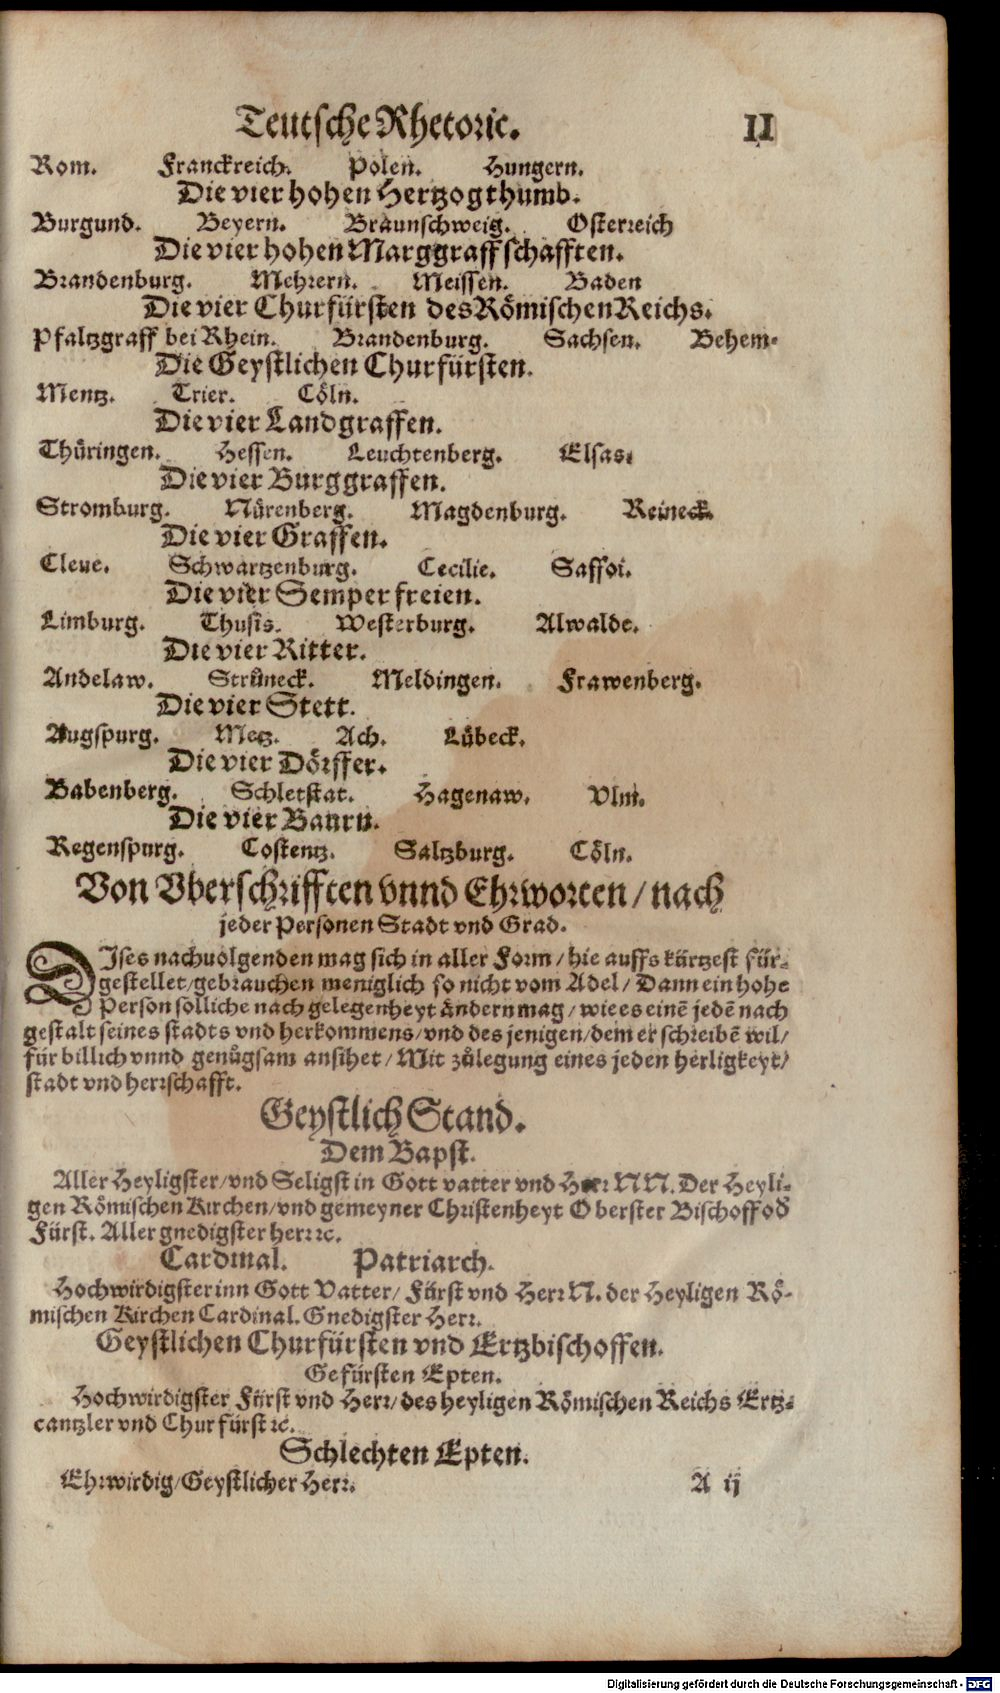 Teutsche Rhetoric. II
Rom. Franckreich. Polen. Hungern.
Die vier hohen Hertzogthumb.
Burgund. Beyern. Braunschweig. Osterreich
Die vier hohen Marggraffschafften.
Brandenburg. Mehrern. Meissen. Baden
Die vier Churfürsten des Römischen Reichs.
Pfaltzgraff bei Rhein. Brandenburg. Sachsen. Behem.
Die Geystlichen Churfürsten.
Mentz. Trier. Cöln.
Die vier Landgraffen.
Thüringen. Hessen. Leuchtenberg. Elsas.
Die vier Burggraffen.
Stromburg. Nürenberg. Magdenburg. Reineck.
Die vier Graffen.
Cleue. Schwartzenburg. Cecilie. Saffoi.
Die vier Semperfreien.
Limburg. Thusis. Westerburg. Alwalde.
Die vier Ritter.
Andelaw. Strüneck. Meldingen. Frawenberg.
Die vier Stett.
Augspurg. Metz. Ach. Lübeck.
Die vier Dörffer.
Babenberg. Schletstat. Hagenaw. Vlm.
Die vier Baurn.
Regenspurg. Costentz. Saltzburg. Cöln.
Von Vberschrifften vnnd Ehrworten/ nach
jeder Personen Stadt vnd Grad.
DIses nachuolgenden mag sich in aller Form/ hie auffs kürtzest für-
gestellet/ gebrauchen meniglich so nicht vom Adel/ Dann ein hohe
Person solliche nach gelegenheyt ändern mag/ wie es einē jedē nach
gestalt seines stadts vnd herkommens/ vnd des jenigen/ dem er schreibē wil/
für billich vnnd genůgsam ansihet/ Mit zůlegung eines jeden herligkeyt/
stadt vnd herrschafft.
Geystlich Stand.
Dem Bapst.
Aller Heyligster/ vnd Seligst in Gott vatter vnd Herr N N. Der Heyli-
gen Römischen Kirchen/ vnd gemeyner Christenheyt Oberster Bischoff od̕
Fürst. Aller gnedigster herr ꝛc.
Cardinal. Patriarch.
Hochwirdigster inn Gott Vatter/ Fürst vnd Herr N. der Heyligen Rö-
mischen Kirchen Cardinal. Gnedigster Herr.
Geystlichen Churfürsten vnd Ertzbischoffen.
Gefürsten Epten.
Hochwirdigster Fürst vnd Herr/ des heyligen Römischen Reichs Ertz-
cantzler vnd Churfürst ꝛc.
Schlechten Epten.
Ehrwirdig/ Geystlicher Herr. A ij
Digitalisierung gefördert durch die Deutsche Forschungsgemeinschaft - DFG